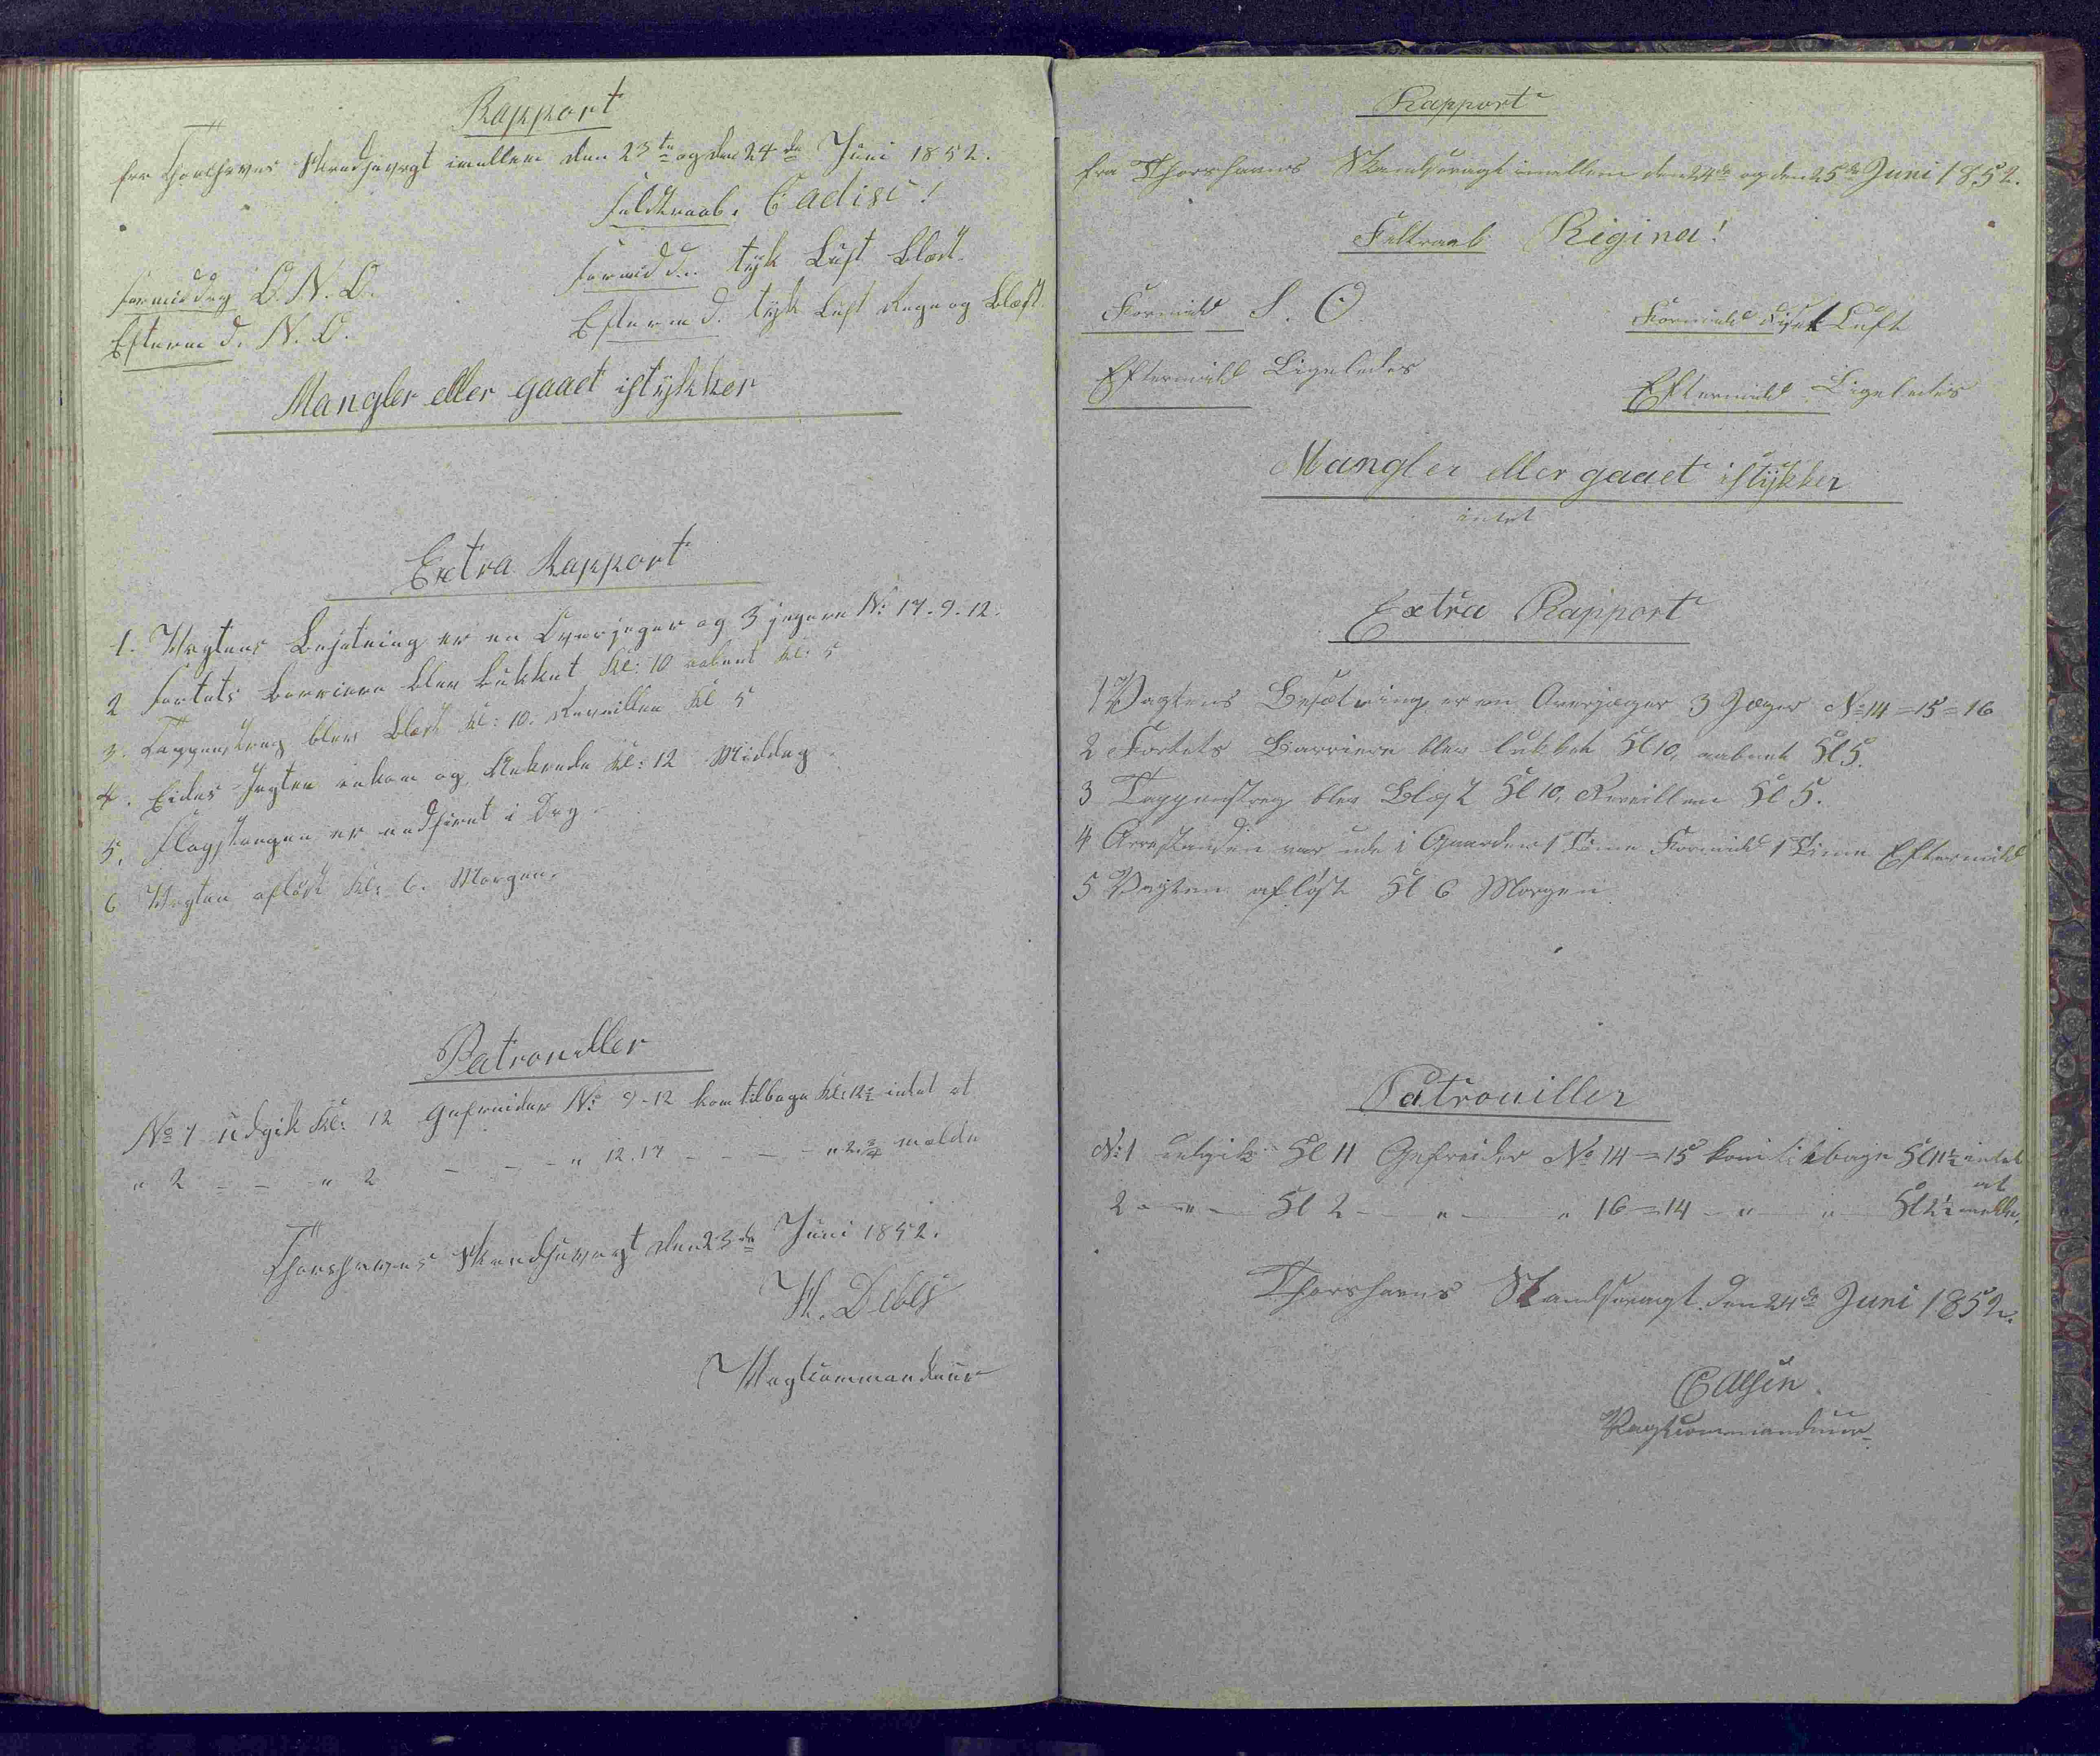 Rapport
fra Thorshavns Skandsevagt imellem den 23de og den 24de Juni 1852.
Feldtraab. Cadisc!
Formiddag O.N.O.
Formidd. tyk Luft Blæst.
Efterm d. N.O.
Efterm d. tyk Luft Regn og Blæst.
Mangler eller gaaet istykker
Extra Rapport
1. Vagtens Besætning er en Overjæger og 3 jægere No: 17-9-12.
2 Fortets Barriere blev Lukket Kl: 10 aabnet Kl: 5
3. Tappenstreg blev Blæst Kl: 10. Reveillen Kl 5
4. Eides Jagten inkom og Ankrede Kl: 12 Middag.
5. Flagstangen er nedfiret i Dag.
6 Vagten afløst Kl: 6. Morgen.
Patrouiller
No 1 Udgik Kl: 12 Gefreider No: 9-12 kom tilbage Kl: 12½ intet at
" 2 - - " 2 - - - " 12.17 - - - - " 2¾ melde
Thorshavns Skandsevagt den 23de Juni 1852.
H. Debes
Vagtcommandeur
Rapport
fra Thorshavns Skandsevagt imellem den 24de og den 25de Juni 1852.
Feltraab Rigina!
Formidd S.O.
Formidd Tyk Luft
Eftermidd Ligeledes
Eftermidd Ligeledes
Mangler eller gaaet istykker
intet
Extra Rapport
1 Vagtens Besætning er en Overjæger 3 Jæger No 14=15=16
2 Fortets Barriere blev lukket Kl 10, aabnet Kl 5.
3 Tappenstreg blev Blæst Kl 10, Reveillen Kl 5.
4 Arrestanden var ude i Gaarden 1 Time Formidd 1 Time Eftermidd
5 Vagten afløst Kl 6 Morgen
Patrouiller
No: 1 udgik Kl 11 Gefreider No 14=15 kom tilbage Kl 11½ intet
at
2 - " - Kl 2 - " - " 16=14 - " - " Kl 2½ melde.
Thorshavns Skandsevagt den 24de Juni 1852.
Vagtcommandeur